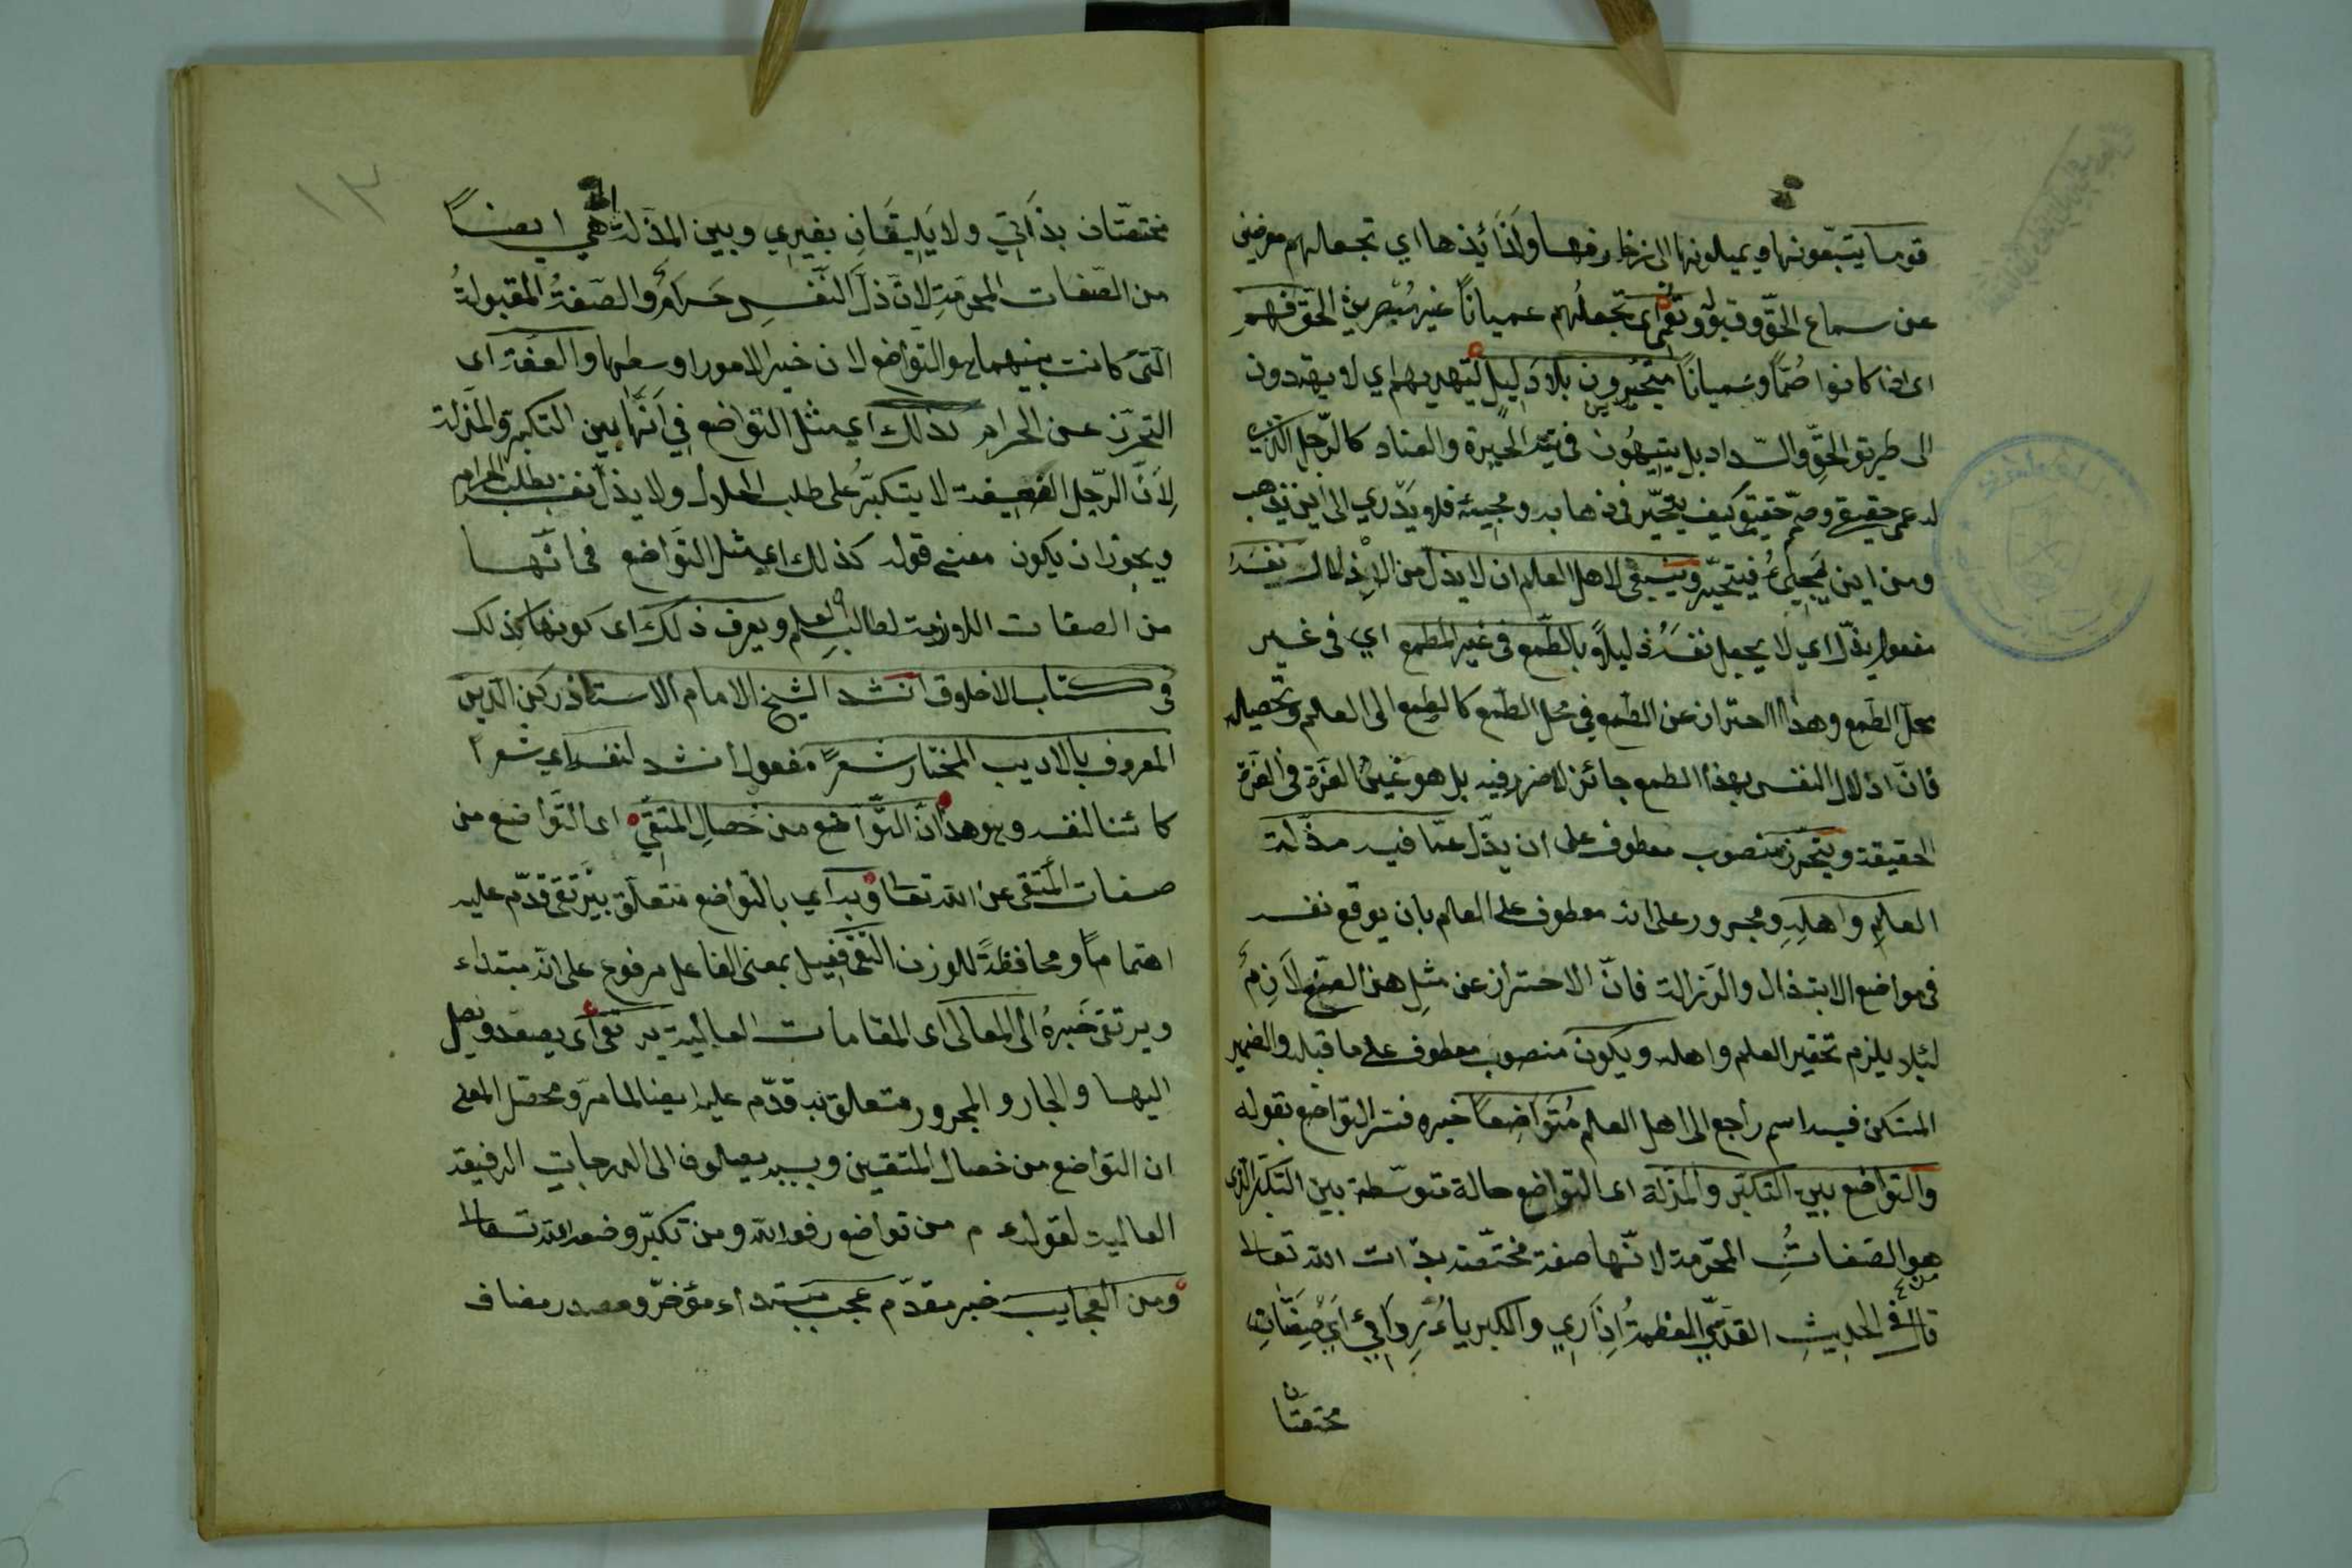 قوما يتبعونها ويميلونها الى زخارفها ولذائذها اي تجعلهم معرضين
عن سماع الحق وقبوله وتعمى اى تجعلهم عميانا غير مبصرين الحق فهم
اى اذا كانوا صما وعميانا متحيرون بلا دليل ليهديهم اي لا يهتدون
الى طريق الحق والسداد بل يتيهون في تيه الحيرة والعناد كالرجل الذي
له عمى حقيقى وصم حقيقى كيف يتحير فى ذهابه ومجيئه فلا يدري الى اين يذهب
ومن اين يجيئ فيتحير وينبغى لاهل العلم ان لا يذل من الاذلال نفسه
مفعول يذل اي لا يجعل نفسه ذليلا بالطمع فى غير المطمع اي فى غير
محل الطمع وهذا احتراز عن الطمع في محل الطمع كالطمع الى العلم وتحصيله
فان اذلال النفس بهذا الطمع جائز لا ضرر فيه بل هو عين العزة فى العزة
الحقيقة ويتحرز منصوب معطوف على ان يذل عما فيه مذلة
العلم واهله ومجرور على انه معطوف على العلم بان يوقع نفسه
فى مواضع الابتذال والرذالة فان الاحتراز عن مثل هذا الصنع لازم
لئلا يلزم تحقير العلم واهله ويكون منصوب معطوف على ما قبله والضمير
المستكن فيه اسم راجع الى اهل العلم متواضعا خبره فسر التواضع بقوله
والتواضع بين التكبر والمذلة اى التواضع حالة متوسطة بين التكبر الذى
هو من الصفات المحرمة لانها صفة مختصة بذات الله تعالى
قال فى الحديث القدسي العظمة اذاري والكبرياء ردائي اي صفتان
مختصتان
مختصتان بذاتي ولا يليقان بغيري وبين المذلة التى هي ايضا
من الصفات المحرمة لان ذل النفس حرام والصفة المقبولة
التى كانت بينهما هو التواضع لان خير الامور اوسطها والعفة اى
التحرز عن الحرام كذلك اي مثل التواضع في انها بين التكبر والمذلة
لان الرجل العفيفة لا يتكبر على طلب الحلال ولا يذل نفسه بطلب الحرام
ويجوز ان يكون معنى قوله كذلك اي مثل التواضع فى انها
من الصفات اللازمة لطالب العلم ويعرف ذلك اى كونها كذلك
فى كتاب الاخلاق انشد الشيخ الامام الاستاذ ركن الدين
المعروف بالاديب المختار شعرا مفعول انشد لنفسه اي شعرا
كائنا لنفسه وهو هذا ان التواضع من خصال المتقي اى التواضع من
صفات المتقى عن الله تعالى وبه اي بالتواضع متعلق بيرتقى قدم عليه
اهتماما ومحافظة للوزن التقى فعيل بمعنى الفاعل مرفوع على انه مبتداء
ويرتقى خبره الى المعالى اى المقامات العالية يرتقى اى يصعد ويصل
اليها والجار والمجرور متعلق به قدم عليه ايضا لما مر ومحصل المعنى
ان التواضع من خصال المتقين وبسببه يصلون الى الدرجات الرفيعة
العالية لقوله ع م من تواضع رفعه الله ومن تكبر وضعه الله تعالى
ومن العجايب خبر مقدم عجب مبتداء مؤخر ومصدر مضاف
١٣